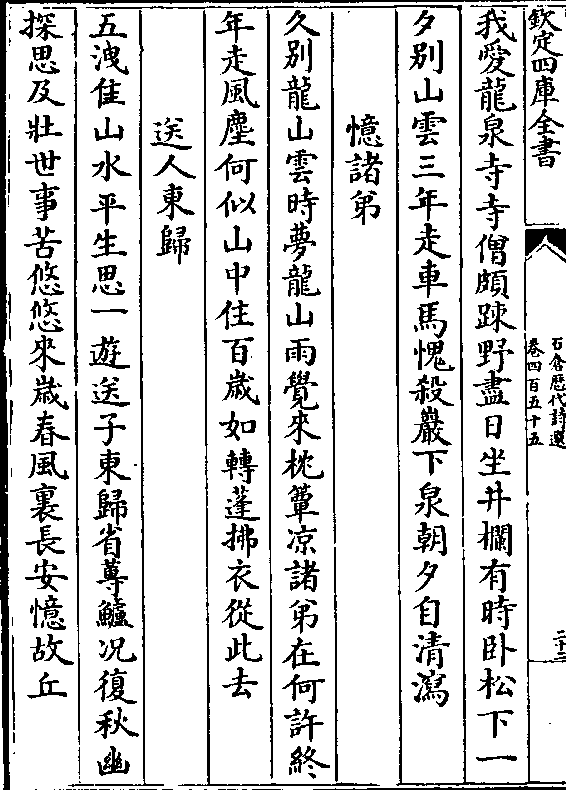 欽定四庫全書
石倉歷代詩選
卷四百五十五
二十二
我愛龍泉寺寺僧頗踈野盡日坐井欄有時卧松下一
夕别山雲三年走車馬愧殺巖下泉朝夕自清瀉
憶諸弟
久别龍山雲時夢龍山雨覺來枕簟凉諸弟在何許終
年走風塵何似山中住百歳如轉蓬拂衣從此去
送人東歸
五洩佳山水平生思一遊送子東歸省蓴鱸况復秋幽
探思及壯世事苦悠悠來歳春風裏長安憶故丘